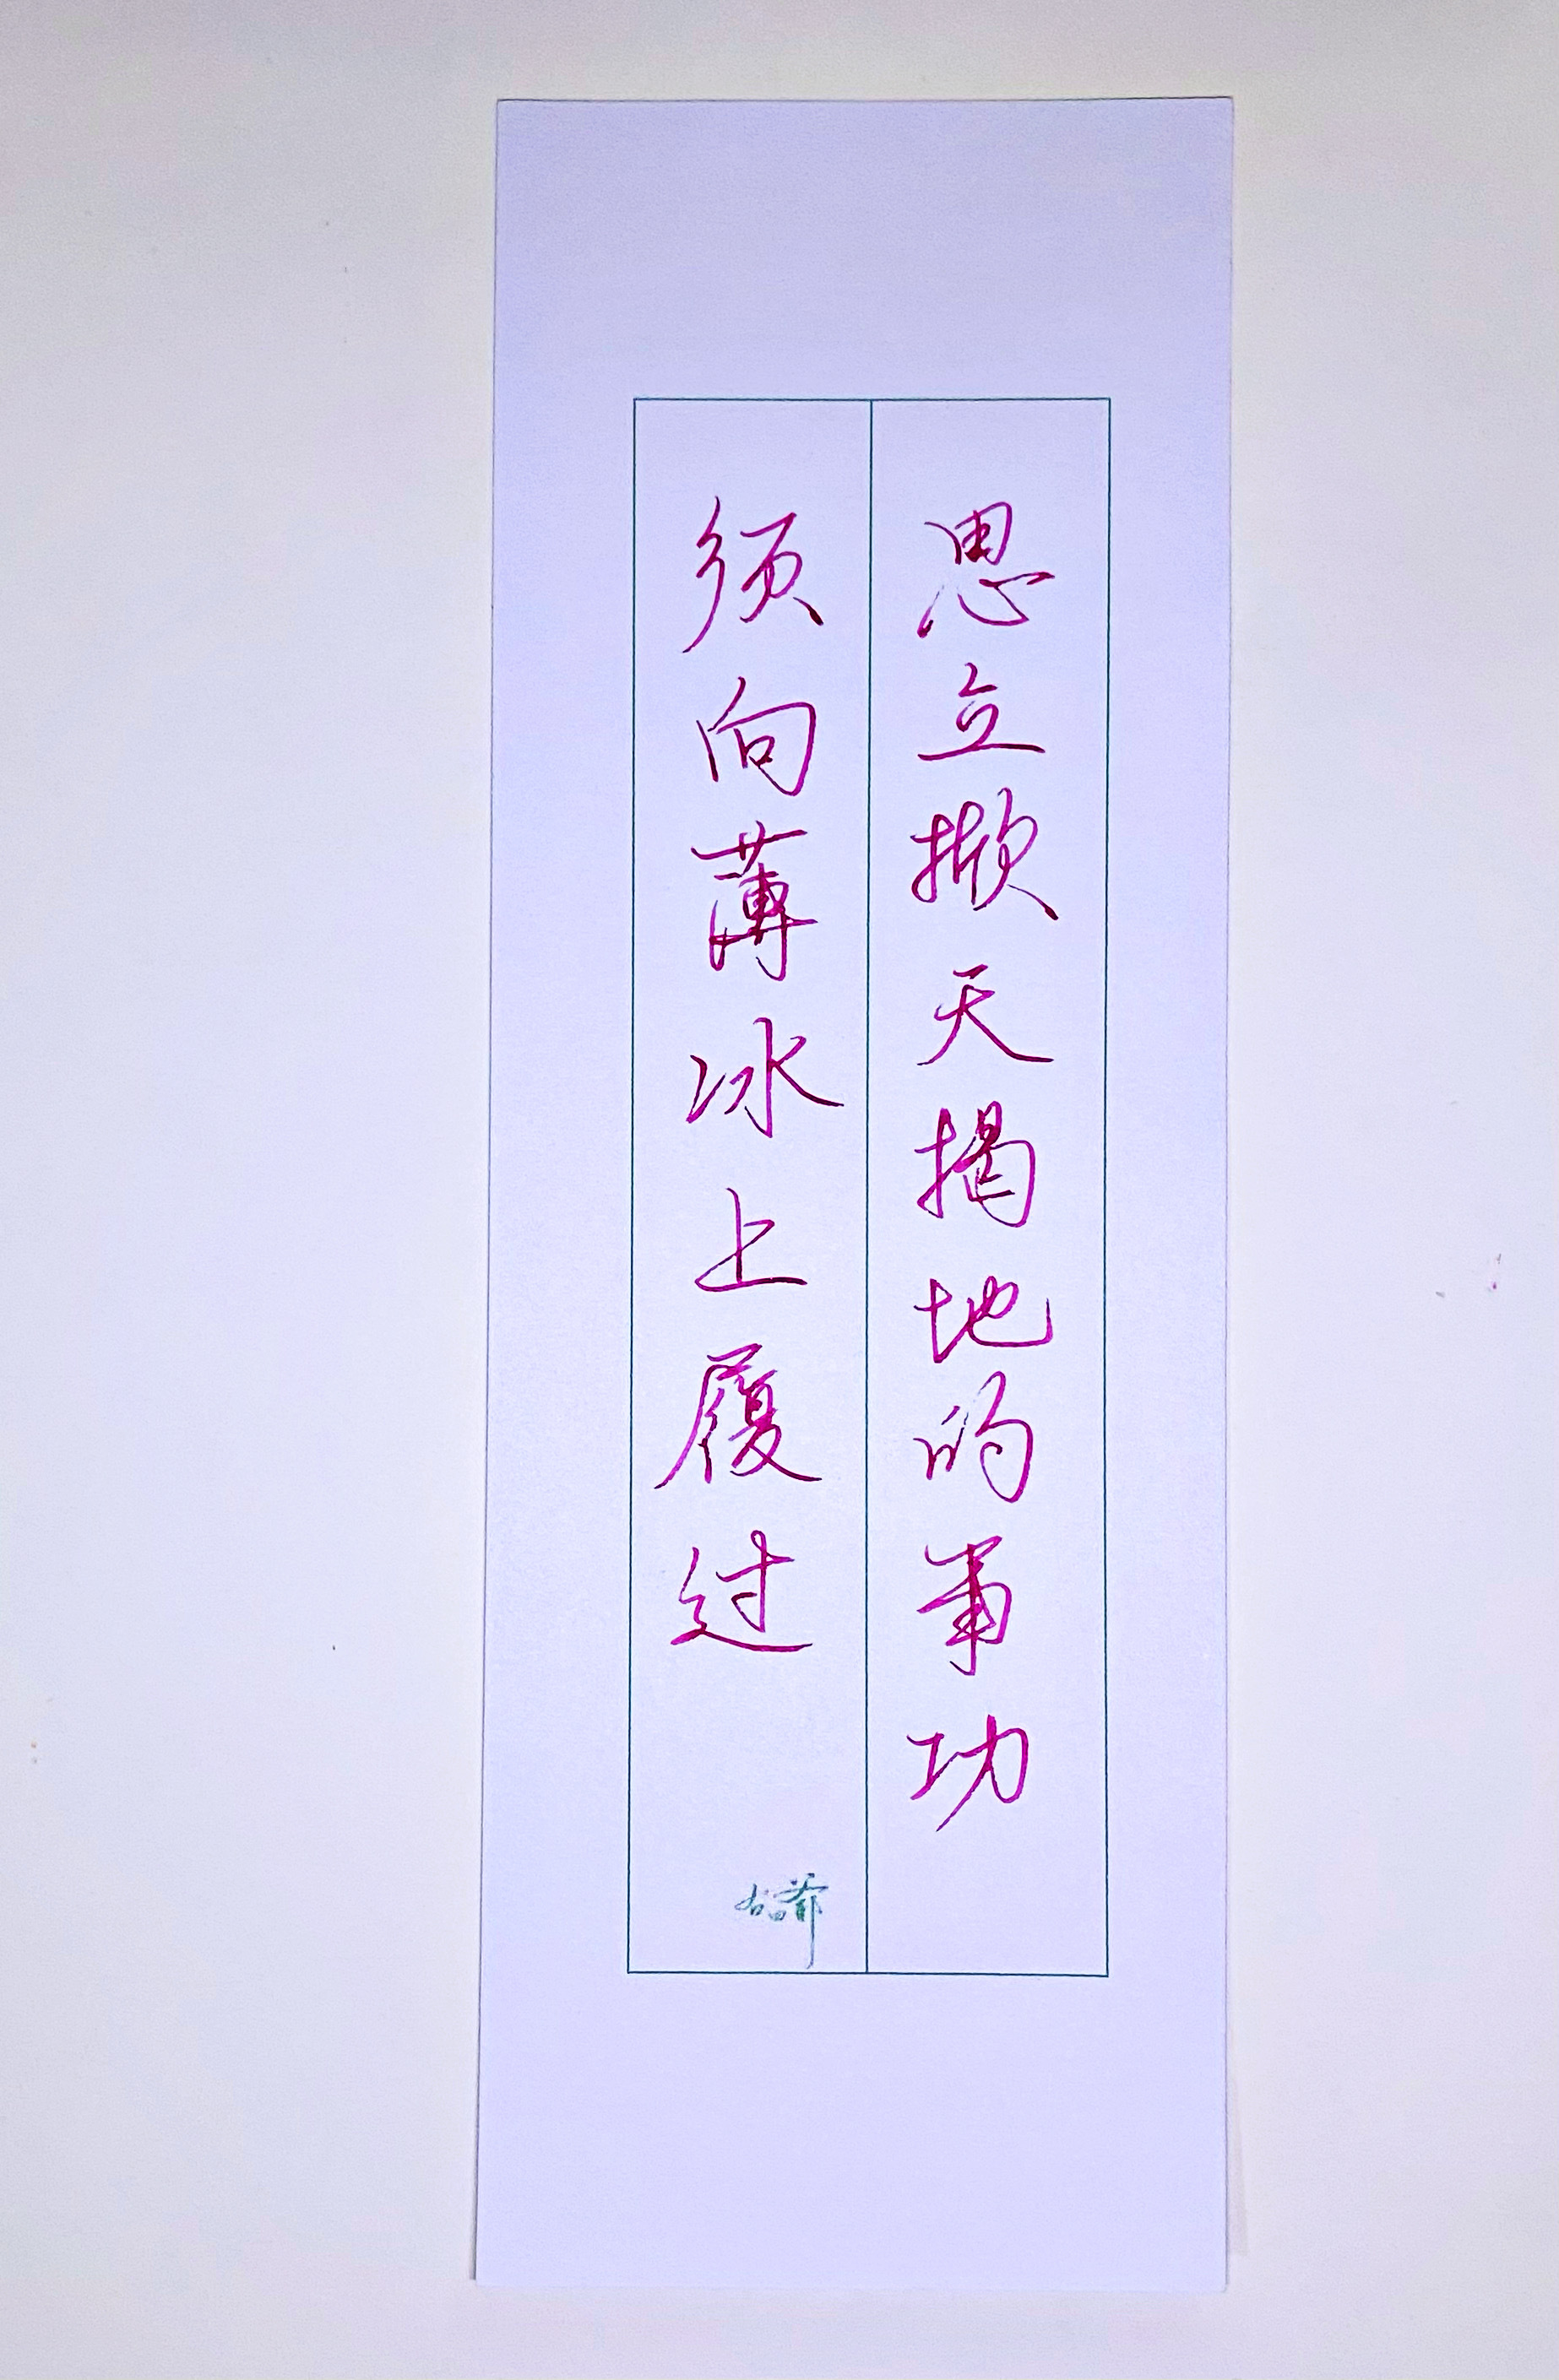 思立掀天揭地的事功
须向薄冰上履过